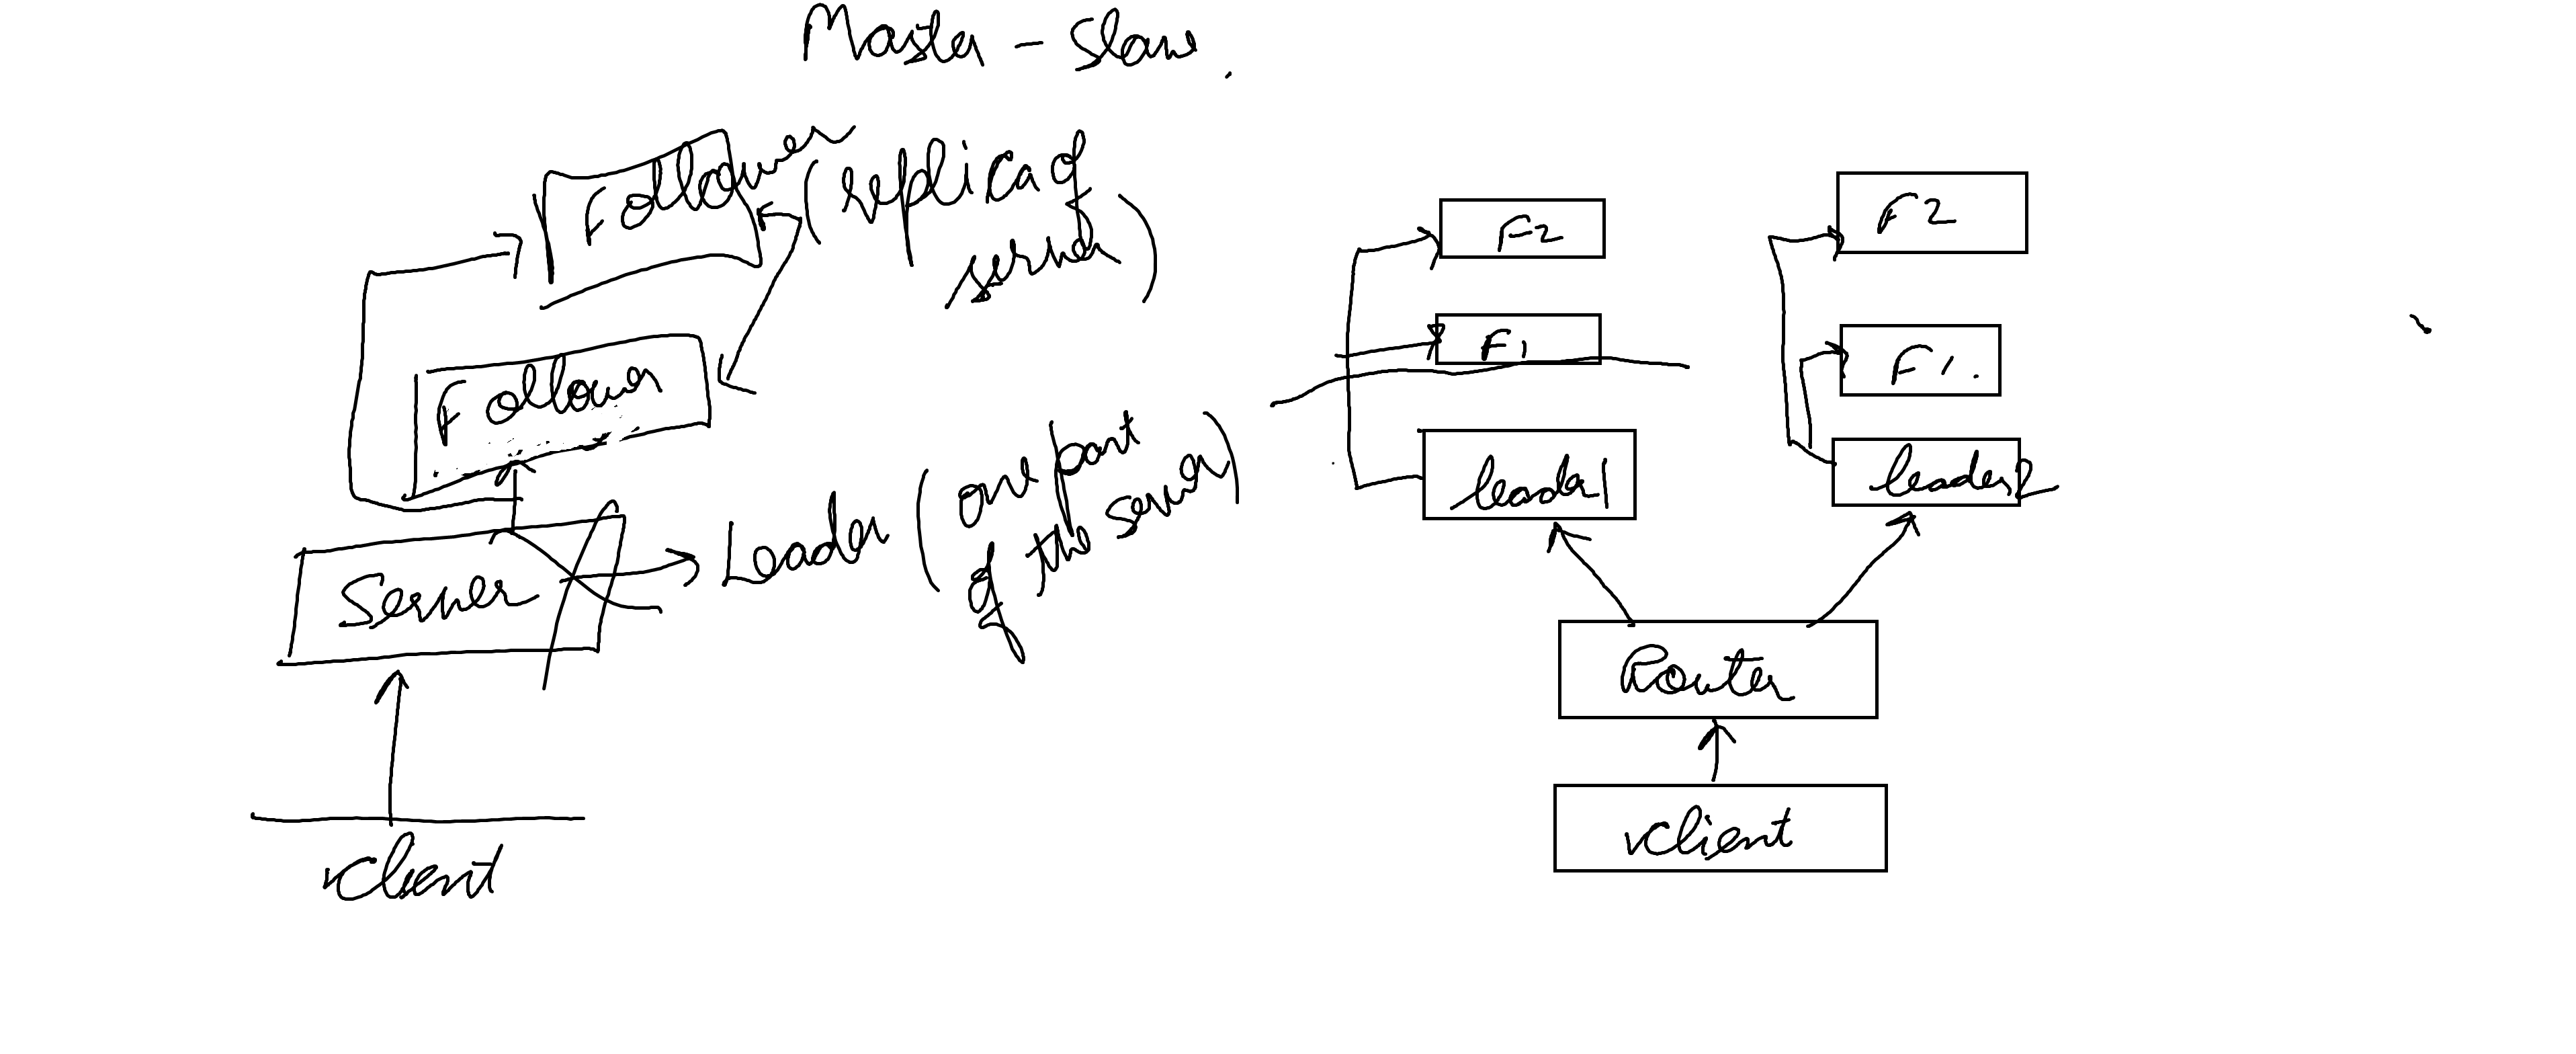 Master - Slave.
Follower
(replica of
server)
Follower
Server
Leader (one part
of the server)
client
F2
F1
leader1
F2
F1.
leader2
Router
client